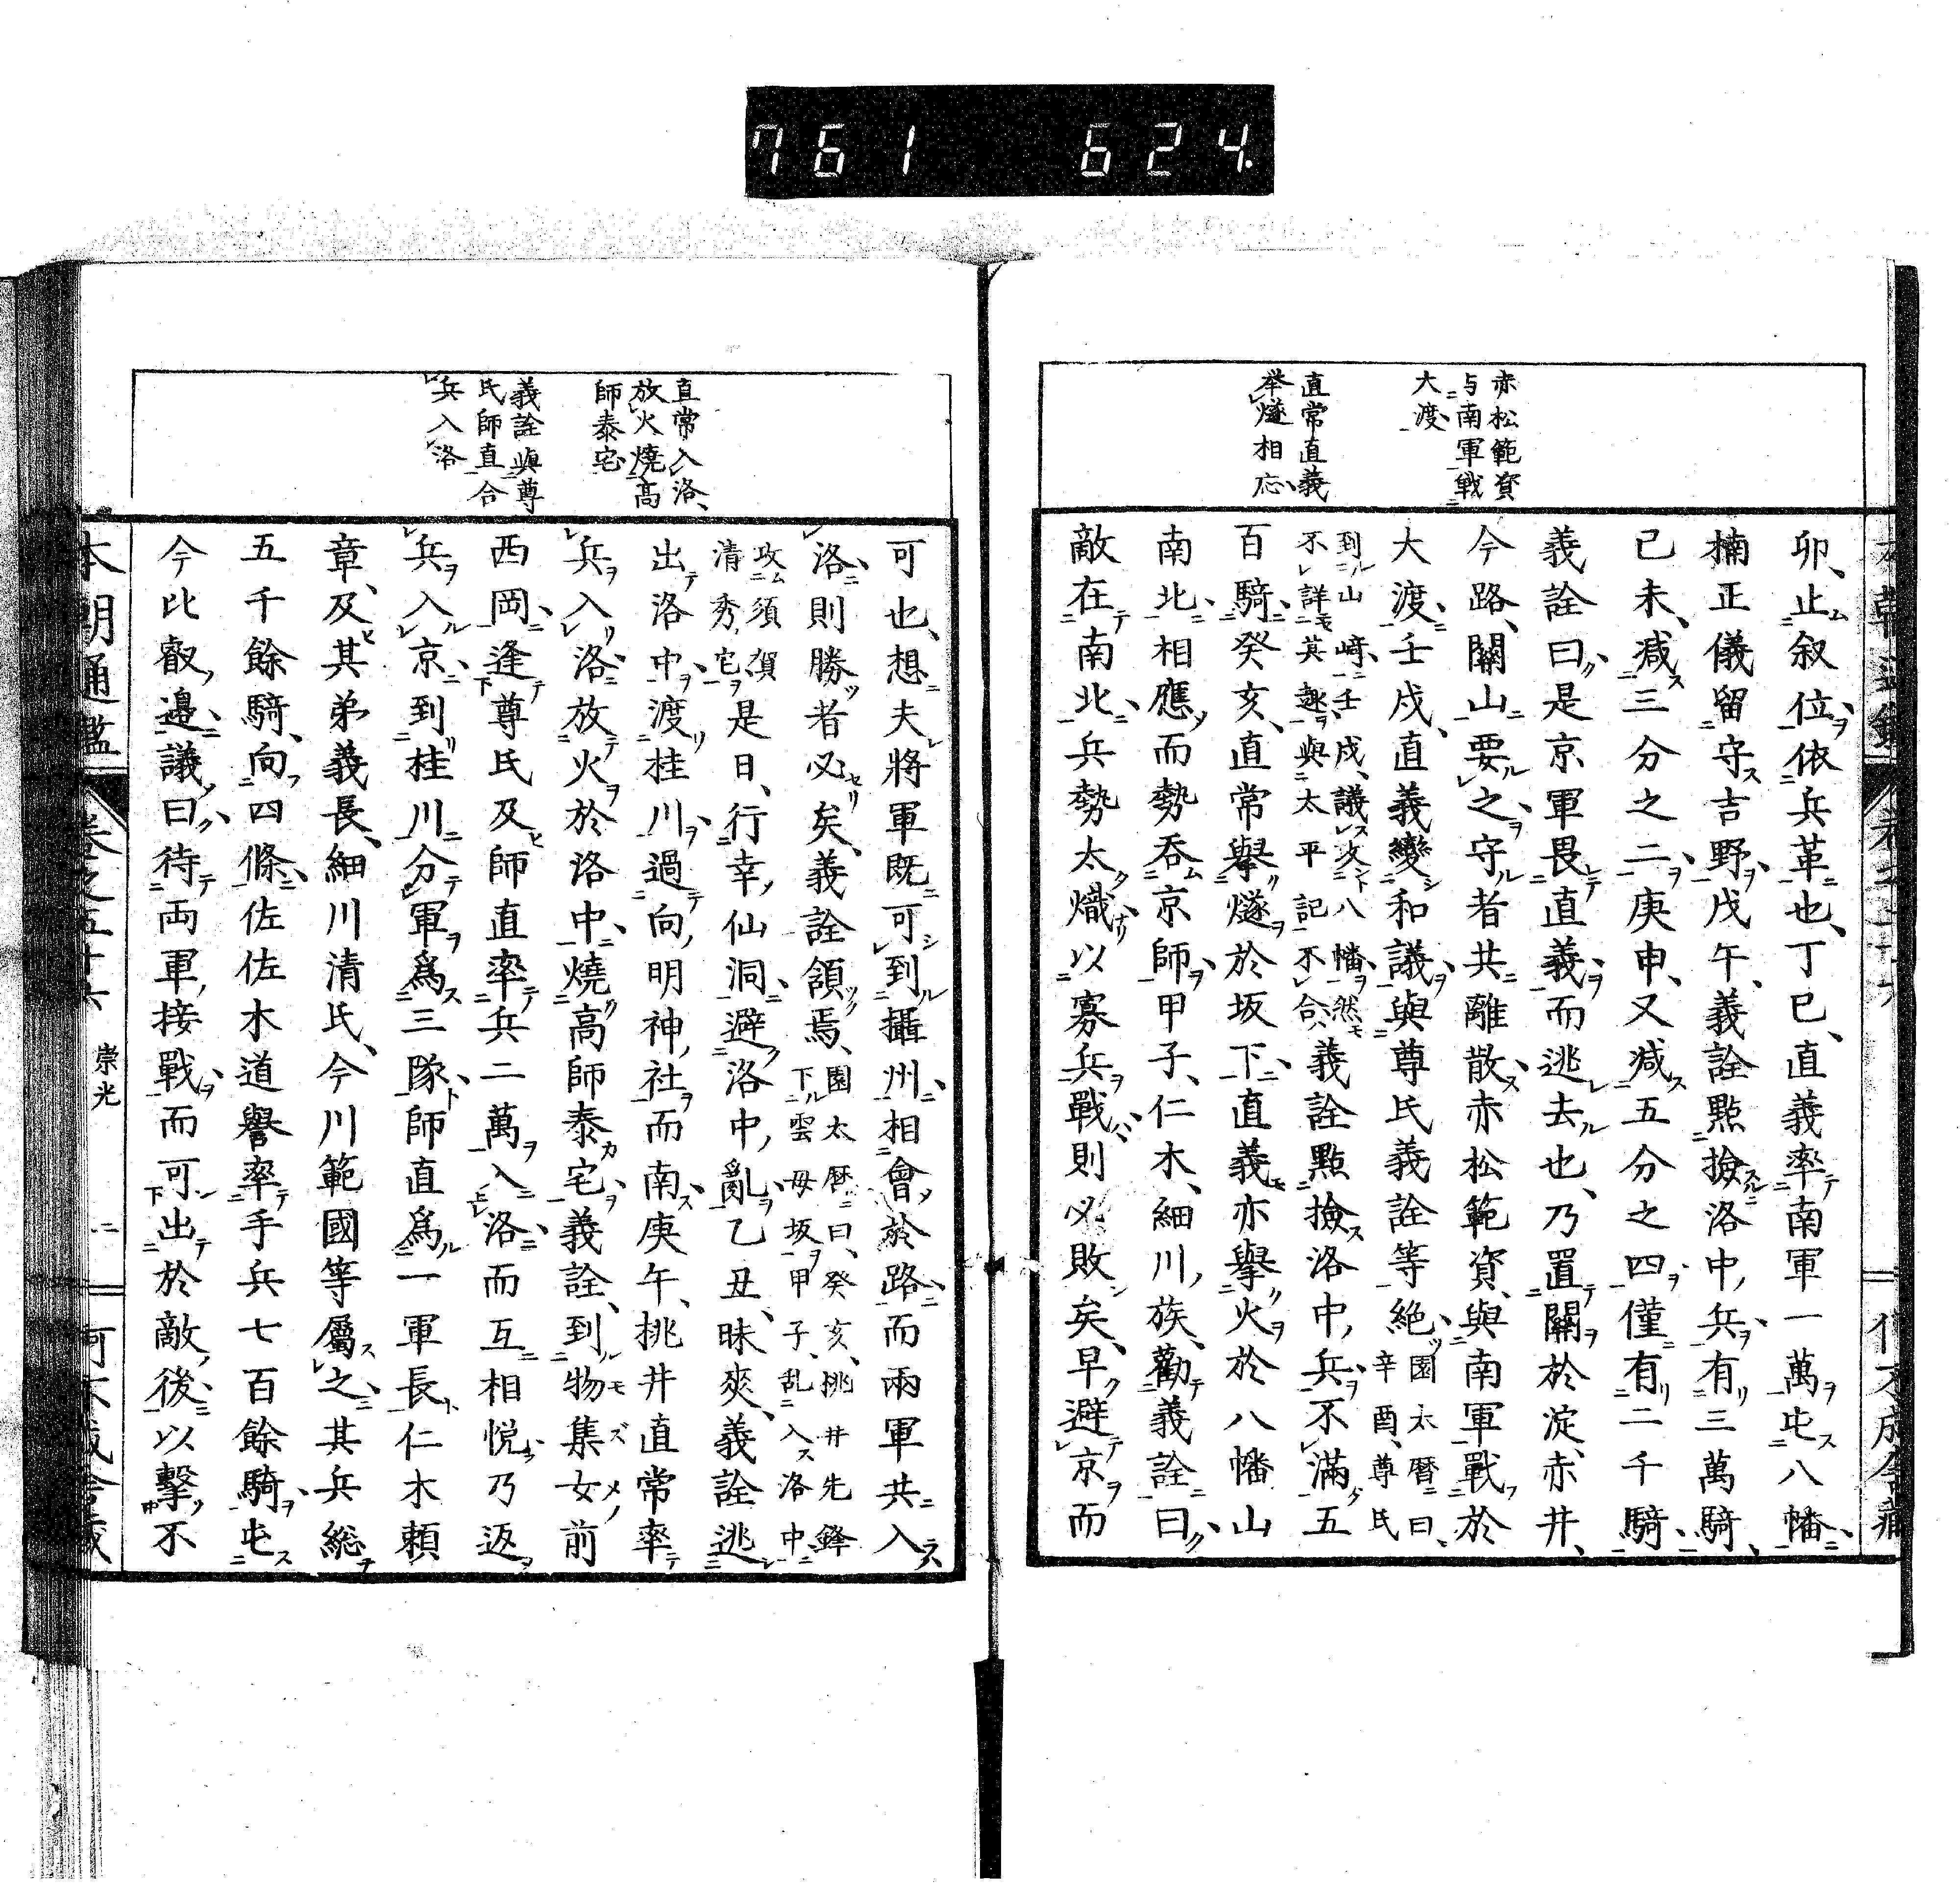 761 624
赤松範資
与南軍戦
大渡
直常直義
举燧相応
卯止叙位依兵革也丁巳直義率南軍一萬屯八幡
楠正儀留守吉野戊午義詮點撿洛中兵有三萬騎
已未減三分之二庚申又減五分之四僅有二千騎
義詮曰是京軍畏直義而逃去也乃置關於淀赤井
今路關山要之守者共離散赤松範資與南軍戰於
大渡壬戌直義變和議與尊氏義詮等絶園太暦曰
辛酉尊氏
到山﨑壬戌議攻八幡然
不詳其趣與太平記不合義詮點撿洛中兵不滿五
百騎癸亥直常擧燧於坂下直義亦擧火於八幡山
南北相應而勢吞京師甲子仁木細川族勸義詮曰
敵在南北兵勢太熾以寡兵戰則必敗矣早避京而
直常入洛
放火燒高
師泰宅
義詮與尊
氏師直合
兵入洛
可也想夫將軍既可到攝州相會於路而兩軍共入
洛則勝者必矣義詮領焉園太暦曰癸亥桃井先鋒
下雲母坂甲子乱入洛中
攻須賀
清秀宅是日行幸仙洞避洛中亂乙丑昧爽義詮逃
出洛中渡桂川過向明神社而南庚午桃井直常率
兵入洛放火於洛中燒高師泰宅義詮到物集女前
西岡逢尊氏及師直率兵二萬入洛而互相悦乃返
兵入京到桂川分軍爲三隊師直爲一軍長仁木頼
章及其弟義長細川清氏今川範國等屬之其兵総
五千餘騎向四條佐佐木道譽率手兵七百餘騎屯
今比叡邊議曰待両軍接戰而可出於敵後以擊不
本朝通鑑 卷之五十六 崇光 二